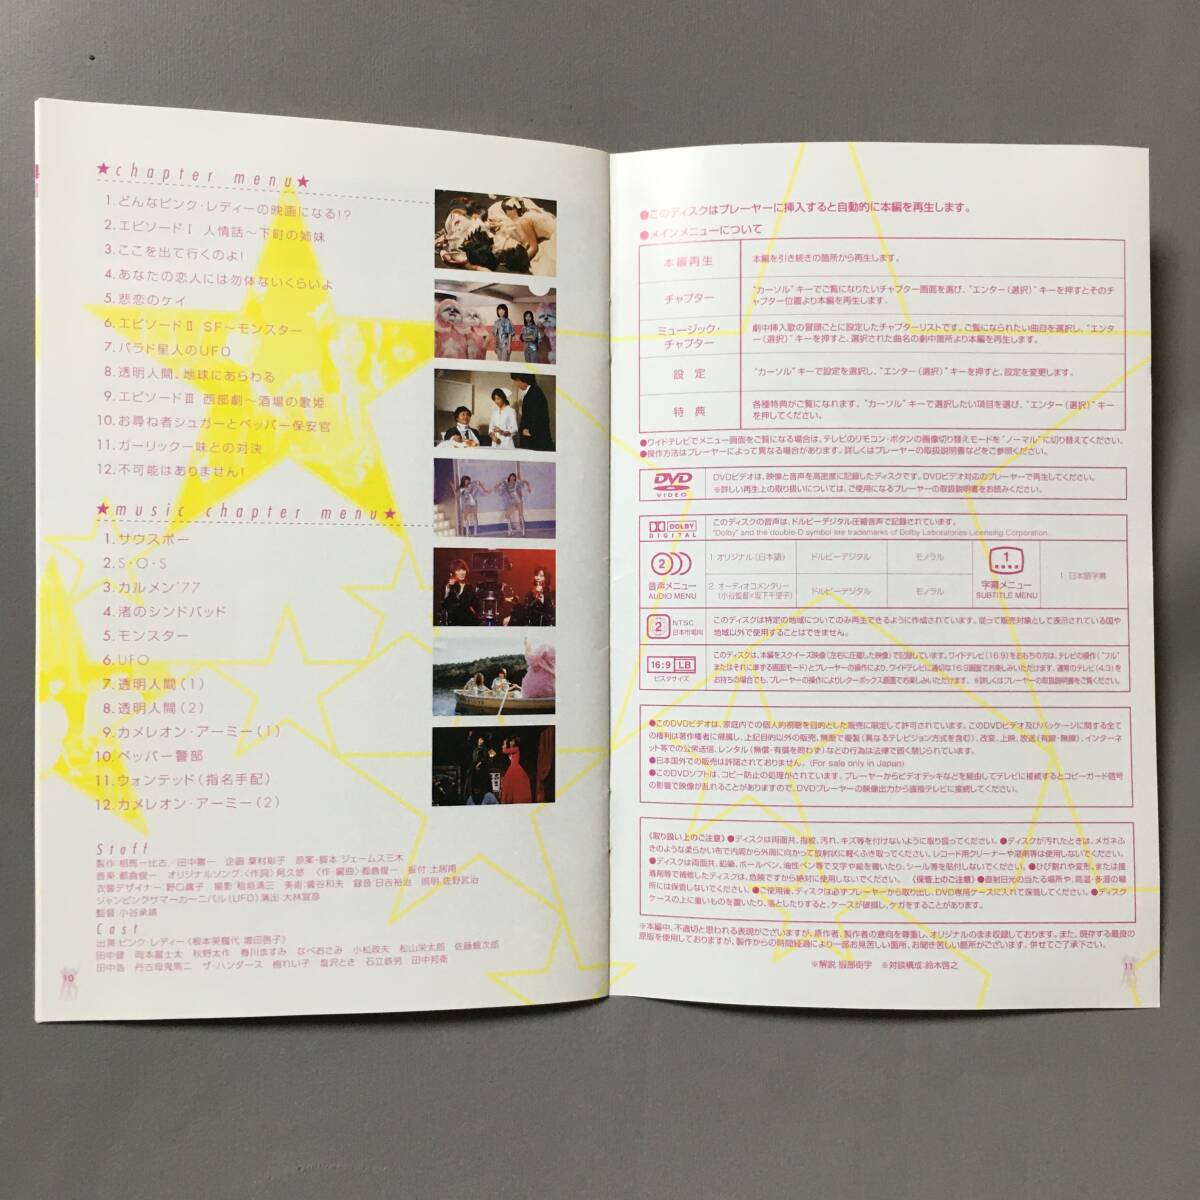 ★chapter menu★
1.どんなピンク・レディーの映画になる!?
2.エピソードⅠ 人情話～下町の姉妹
3.ここを出て行くのよ!
4.あなたの恋人には勿体ないくらいよ
5.悲恋のケイ
6.エピソードⅡ SF～モンスター
7.パラド星人のUFO
8.透明人間、地球にあらわる
9.エピソードⅢ 西部劇～酒場の歌姫
10.お尋ね者シュガーとペッパー保安官
11.ガーリック一味との対決
12.不可能はありません!
★music chapter menu★
1.サウスポー
2.S・O・S
3.カルメン'77
4.渚のシンドバッド
5.モンスター
6.UFO
7.透明人間(1)
8.透明人間(2)
9.カメレオン・アーミー(1)
10.ペッパー警部
11.ウォンテッド(指名手配)
12.カメレオン・アーミー(2)
Staff
製作:相馬一比古/田中壽一 企画:葉村彰子 原案・脚本:ジェームス三木
音楽:都倉俊一 オリジナルソング:〈作詞〉阿久悠 〈作・編曲〉都倉俊一 振付:土居甫
衣装デザイナー:野口庸子 撮影: 美術:育野重一 録音: 照明:佐野武治
ジャンピングサマーカーニバル(UFO)演出:大林宣彦
監督:小谷承靖
Cast
出演:ピンク・レディー《根本美鶴代 増田啓子》
田中健 岡本富士太 秋野太作 春川ますみ なべおさみ 小松政夫 松山栄太郎 佐藤蛾次郎
田中浩 丹古母鬼馬二 ザ・ハンダース 樹れい子 塩沢とき 石立鉄男 田中邦衛
10
●このディスクはプレーヤーに挿入すると自動的に本編を再生します。
●メインメニューについて
本編再生 本編を引き続きの箇所から再生します。
チャプター “カーソル”キーでご覧になりたいチャプター画面を選び、“エンター(選択)”キーを押すとそのチャプター位置より本編を再生します。
ミュージック・チャプター 劇中挿入歌の冒頭ごとに設定したチャプターリストです。ご覧になられたい曲目を選択し、“エンター(選択)”キーを押すと、選択された曲名の劇中箇所より本編を再生します。
設定 “カーソル”キーで設定を選択し、“エンター(選択)”キーを押すと、設定を変更します。
特典 各種特典がご覧になれます。“カーソル”キーで選択したい項目を選び、“エンター(選択)”キーを押してください。
●ワイドテレビでメニュー画面をご覧になる場合は、テレビのリモコン・ボタンの画像切り替えモードを“ノーマル”に切り替えてください。
●操作方法はプレーヤーによって異なる場合があります。詳しくはプレーヤーの取扱説明書などをご参照ください。
DVD VIDEO
DVDビデオは、映像と音声を高密度に記録したディスクです。DVDビデオ対応のプレーヤーで再生してください。
※詳しい再生上の取り扱いについては、ご使用になるプレーヤーの取扱説明書をお読みください。
DOLBY DIGITAL
このディスクの音声は、ドルビーデジタル圧縮音声で記録されています。
"Dolby" and the double-D symbol are trademarks of Dolby Laboratories Licensing Corporation.
2 音声メニュー AUDIO MENU
1.オリジナル(日本語) ドルビーデジタル モノラル
2.オーディオコメンタリー(小谷監督×坂下千里子) ドルビーデジタル モノラル
1 字幕メニュー SUBTITLE MENU
1.日本語字幕
2 NTSC 日本市場向
このディスクは特定の地域についてのみ再生できるように作成されています。従って販売対象として表示されている国や
地域以外で使用することはできません。
16:9 LB ビスタサイズ
このディスクは、本編をスクイーズ映像(左右に圧縮した映像)で記録しています。ワイドテレビ(16:9)をおもちの方は、テレビの操作(“フル”
またはそれに準する画面モード)とプレーヤーの操作により、ワイドテレビに適切な16:9画面でお楽しみいただけます。通常のテレビ(4:3)を
お持ちの場合でも、プレーヤーの操作によりレターボックス画面でお楽しみいただけます。※詳しくはプレーヤーの取扱説明書をご覧ください。
●このDVDビデオは、家庭内での個人的視聴を目的とした販売に限定して許可されています。このDVDビデオ及びパッケージに関する全て
の権利は著作権者に帰属し、上記目的以外の販売、無断で複製(異なるテレビジョン方式を含む)、改変、上映、放送(有線・無線)、インターネ
ット等での公衆送信、レンタル(無償・有償を問わず)などの行為は法律で固く禁じられています。
●日本国外での販売は許諾されておりません。(For sale only in Japan)
●このDVDソフトは、コピー防止の処理がされています。プレーヤーからビデオデッキなどを経由してテレビに接続するとコピーガード信号
の影響で映像が乱れることがありますので、DVDプレーヤーの映像出力から直接テレビに接続してください。
《取り扱い上のご注意》●ディスクは両面共、指紋、汚れ、キズ等を付けないように取り扱ってください。●ディスクが汚れたときは、メガネふ
きのような柔らかい布で内周から外周に向かって放射状に軽くふき取ってください。レコード用クリーナーや溶剤等は使用しないでください。
●ディスクは両面共、鉛筆、ボールペン、油性ペン等で文字や絵を書いたり、シール等を貼付しないでください。●ひび割れや変形、または接
着剤等で補修したディスクは、危険ですから絶対に使用しないでください。《保管上のご注意》●直射日光の当たる場所や、高温・多湿の場
所には保管しないでください。●ご使用後、ディスクは必ずプレーヤーから取り出し、DVD専用ケースに入れて保管してください。●ディスク
ケースの上に重いものを置いたり、落としたりすると、ケースが破損し、ケガをすることがあります。
※本編中、不適切と思われる表現がございますが、原作者、製作者の意向を尊重し、オリジナルのまま収録しております。また、現存する最良の
原版を使用しておりますが、製作からの時間経過により一部お見苦しい箇所、お聞き苦しい箇所がございます。併せてご了承下さい。
※解説:服部街宇 ※対談構成:鈴木啓之
11